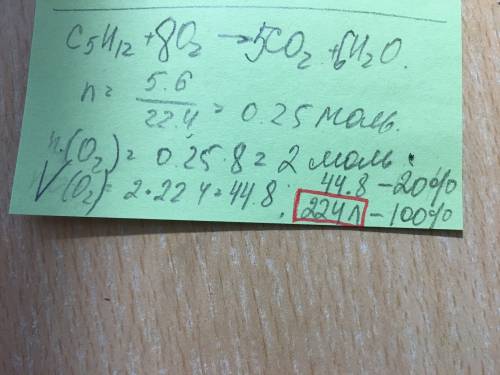 C5H12 + 8O2 → 5CO2 + 6H2O.
n = 5.6 / 22.4 = 0.25 моль.
n(O2) = 0.25·8 = 2 моль.
V(O2) = 2·22.4 = 44.8. 44.8 – 20%
224 л – 100%